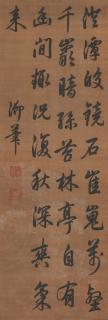 澄潭皎鏡石崔嵬萬壑
千巖暗綠苔林亭自有
幽間趣況復秋深爽氣
來
御筆